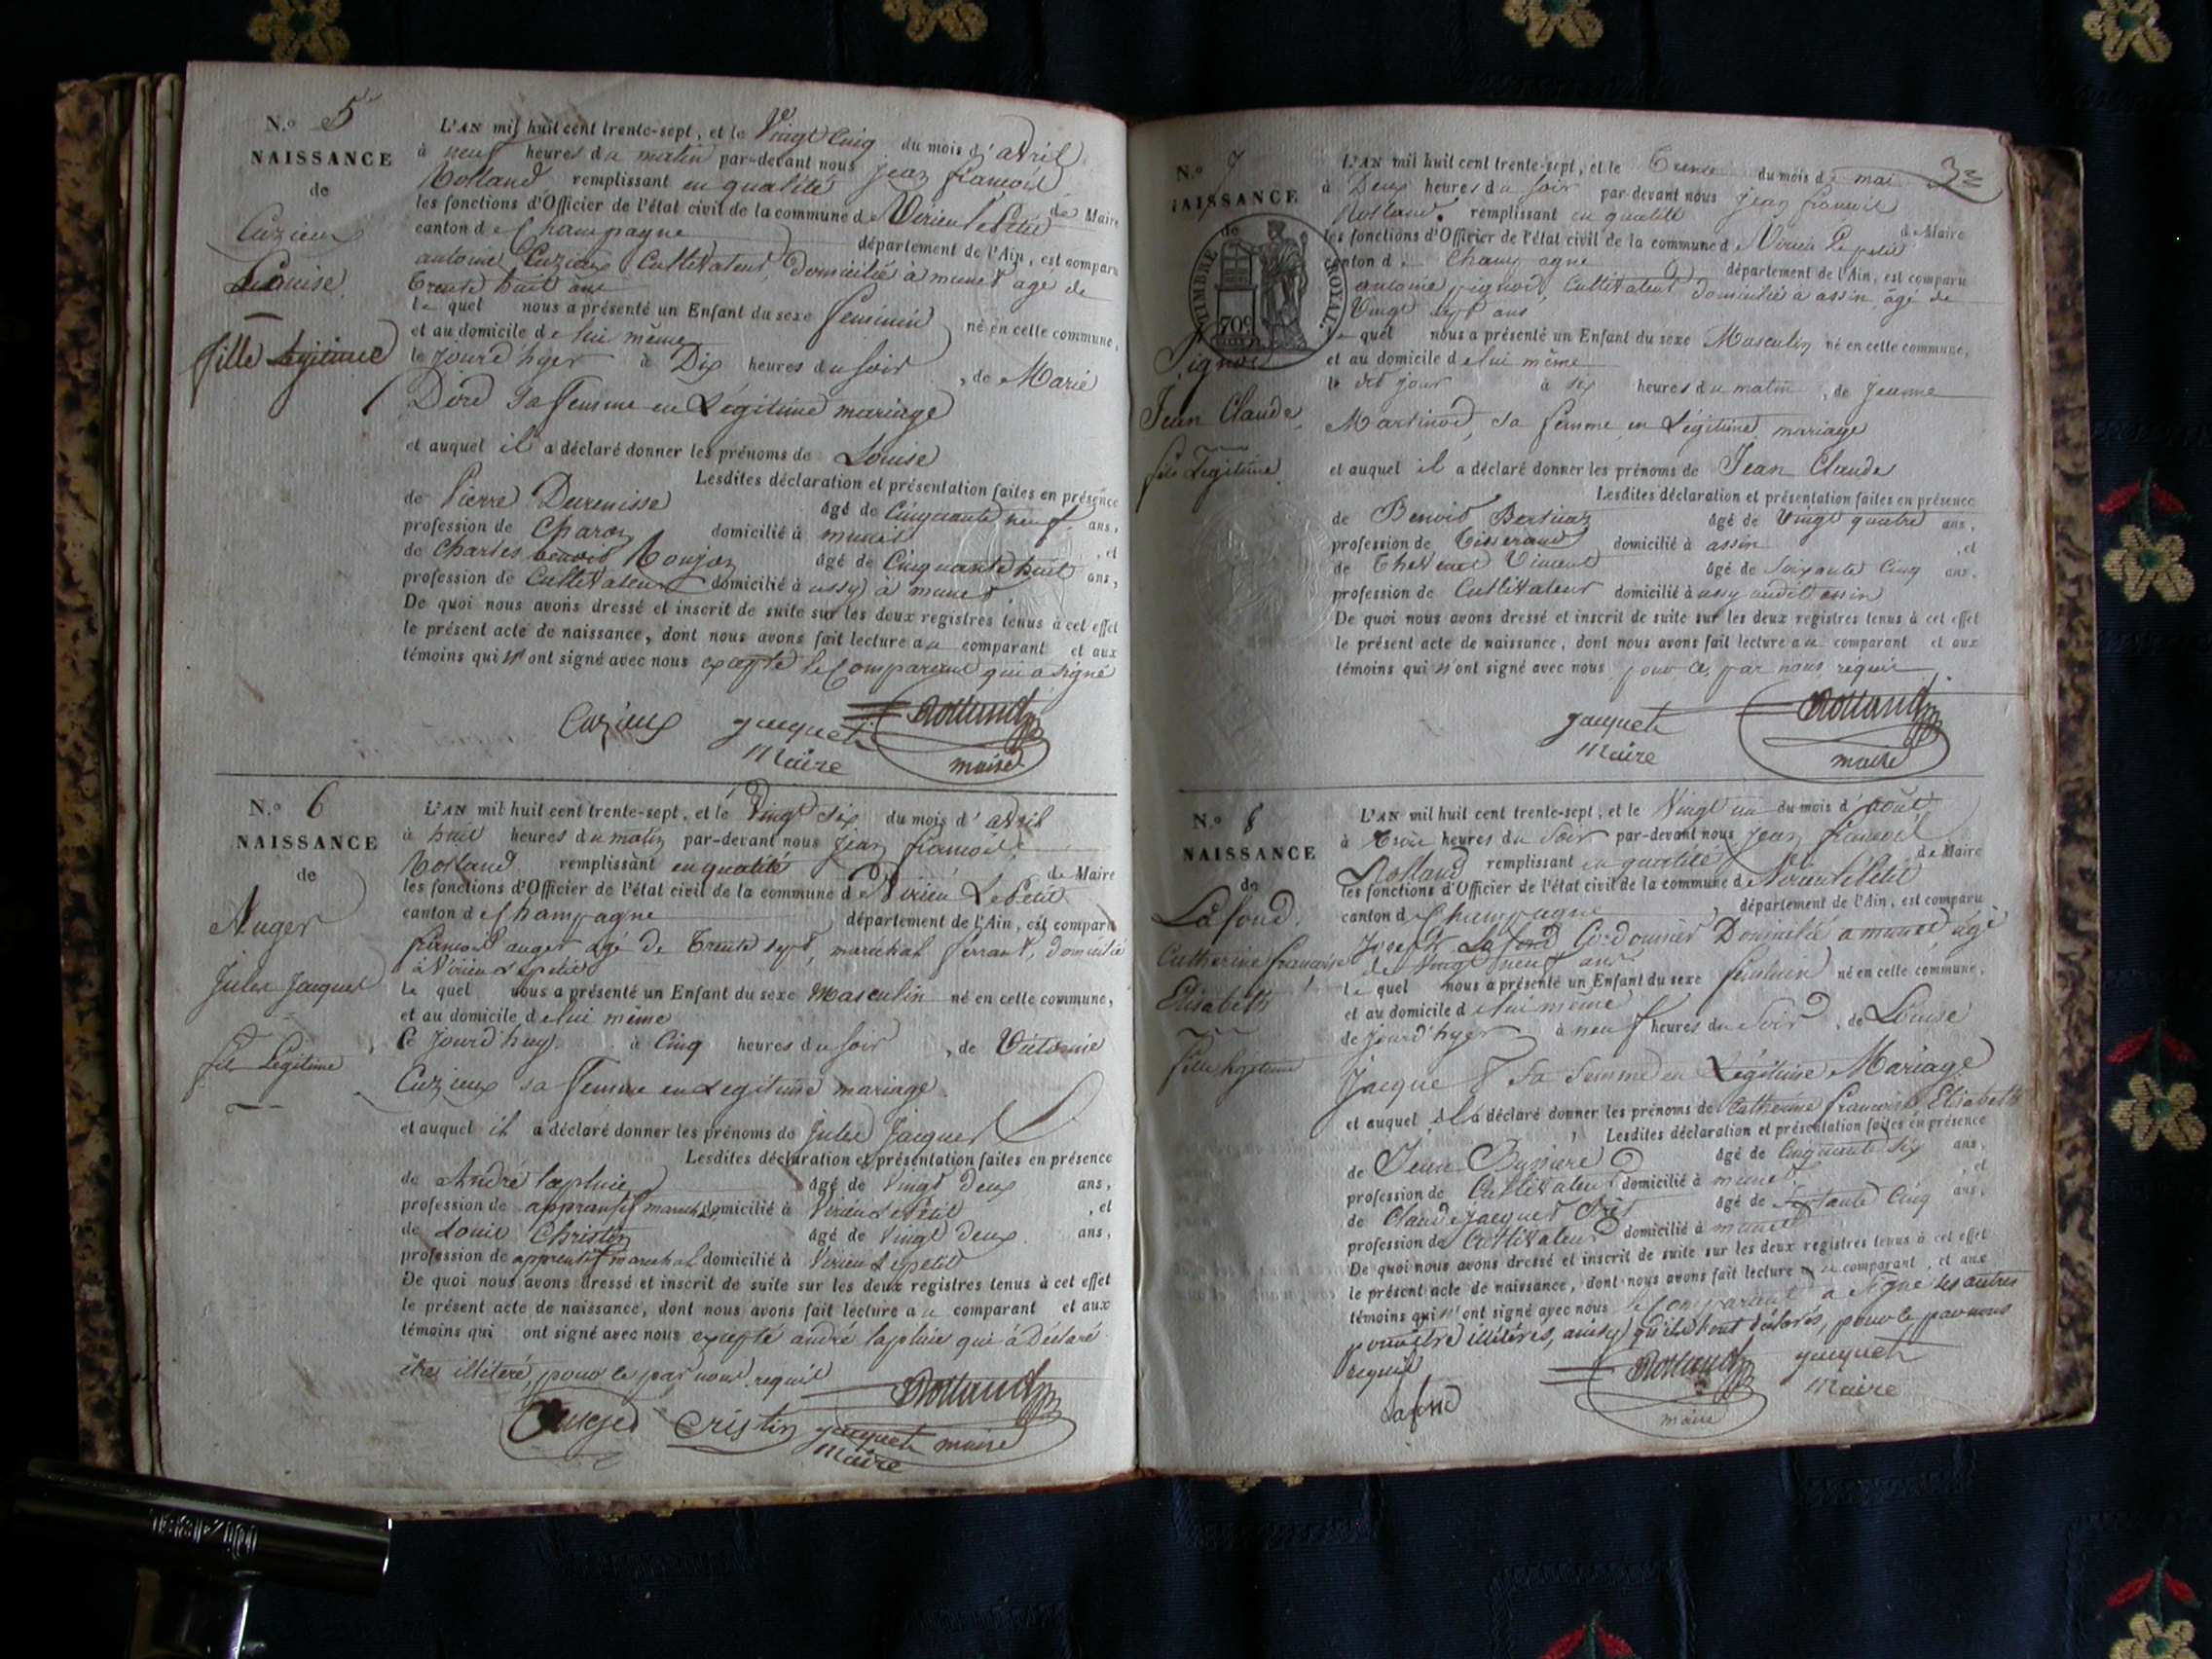 N.o 5
NAISSANCE
de
Cuzieux
Louise
fille Légitime
L'AN mil huit cent trente-sept, et le Vingt Cinq du mois d'avril
à neuf heures du matin par-devant nous jean françois
Rolland remplissant en qualité de Maire
les fonctions d'Officier de l'état civil de la commune de Virieu le Petit
canton de Champagne département de l'Ain, est comparu
antoine Cuzieux Cultivateur, domicilié à munet agé de
trente huit ans
le quel nous a présenté un Enfant du sexe feminin né en cette commune,
et au domicile de lui même
le jour d'hyer à Dix heures du soir, de Marie
sa femme en Légitime mariage
et auquel il a déclaré donner les prénoms de Louise
Lesdites déclaration et présentation faites en présence
de Pierre âgé de Cinquante neuf ans,
profession de Charon domicilié à munet, et
de Charles benoit Roujon âgé de Cinquante huit ans,
profession de Cultivateur domicilié à assy à munet
De quoi nous avons dressé et inscrit de suite sur les deux registres tenus à cet effet
le présent acte de naissance, dont nous avons fait lecture au comparant et aux
témoins qui n'ont signé avec nous excepté le Comparant qui a signé
Cuzieux jacquet Rolland
Maire maire
N.o 6
NAISSANCE
de
Auger
Jules Jacques
fils Légitime
L'AN mil huit cent trente-sept, et le Vingt six du mois d'avril
à huit heures du matin par-devant nous jean françois
Rolland remplissant en qualité de Maire
les fonctions d'Officier de l'état civil de la commune de Virieu Le Petit
canton de Champagne département de l'Ain, est comparu
françois auger agé de trente sept, marechal ferrant, domicilié
à Virieu Le petit
le quel nous a présenté un Enfant du sexe Masculin né en cette commune,
et au domicile de lui même
le jour d'huy à Cinq heures du soir, de
Cuzieux sa femme en Legitime mariage
et auquel il a déclaré donner les prénoms de Jules Jacques
Lesdites déclaration et présentation faites en présence
de André laphin âgé de Vingt deux ans,
profession de domicilié à Virieu le Petit, et
de Louis Christin âgé de Vingt deux ans,
profession de apprentif marechal domicilié à Virieu Le petit
De quoi nous avons dressé et inscrit de suite sur les deux registres tenus à cet effet
le présent acte de naissance, dont nous avons fait lecture au comparant et aux
témoins qui ont signé avec nous excepté andré laphin qui à Déclaré
être illitéré, pour ce par nous requis
Auger Cristin jacquet Rolland
Maire maire
N.o 7
NAISSANCE
de
TIMBRE ROYAL
70c
Pignod
Jean Claude
fils Legitime
L'AN mil huit cent trente-sept, et le du mois de mai
à Deux heures du soir par-devant nous jean françois
Rolland remplissant en qualité de Maire
les fonctions d'Officier de l'état civil de la commune de Virieu Le petit
canton de Champagne département de l'Ain, est comparu
antoine pignod, Cultivateur domicilié à assin âgé de
Vingt sept ans
le quel nous a présenté un Enfant du sexe Masculin né en cette commune,
et au domicile de lui même
le dit jour à six heures du matin, de Jeanne
Martinod, sa femme en Légitime mariage
et auquel il a déclaré donner les prénoms de Jean Claude
Lesdites déclaration et présentation faites en présence
de Benoit âgé de Vingt quatre ans,
profession de Tisserand domicilié à assin, et
de Vincent âgé de Soixante Cinq ans,
profession de Cultivateur domicilié à assy audit assin
De quoi nous avons dressé et inscrit de suite sur les deux registres tenus à cet effet
le présent acte de naissance, dont nous avons fait lecture au comparant et aux
témoins qui n'ont signé avec nous pour ce par nous requis
jacquet Rolland
Maire maire
N.o 8
NAISSANCE
de
Lafond
Catherine françoise
Elisabeth
fille légitime
L'AN mil huit cent trente-sept, et le Vingt un du mois d'août
à trois heures du Soir par-devant nous jean françois
Rolland remplissant en qualité de Maire
les fonctions d'Officier de l'état civil de la commune de Virieu le Petit
canton de Champagne département de l'Ain, est comparu
Joseph Lafond Cordonnier Domicilié a munet agé
de Vingt neuf ans
le quel nous a présenté un Enfant du sexe féminin né en cette commune,
et au domicile de lui même
de jour d'hyer à neuf heures du Soir, de Louise
Jacquet Sa femme en Légitime Mariage
et auquel il a déclaré donner les prénoms de Catherine françoise Elisabeth
Lesdites déclaration et présentation faites en présence
de Jean âgé de Cinquante Six ans,
profession de Cultivateur domicilié à munet, et
de Claude jacquet âgé de Cinq ans,
profession de Cultivateur domicilié à munet
De quoi nous avons dressé et inscrit de suite sur les deux registres tenus à cet effet
le présent acte de naissance, dont nous avons fait lecture au comparant, et aux
témoins qui n'ont signé avec nous le Comparant a signé les autres
pour être illitérés, ainsy qu'ils ont déclarés, pour ce par nous
requis
Lafond Rolland jacquet
maire Maire